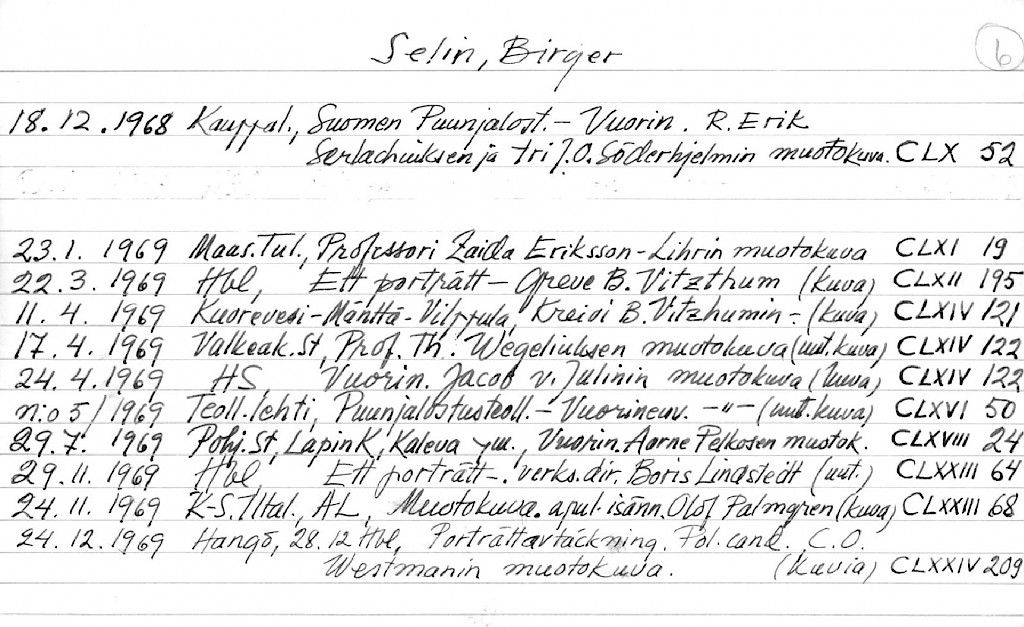 Selin, Birger
6
18.12.1968 Kauppal., Suomen Puunjalost. – Vuorin. R. Erik
Serlachiuksen ja tri J.O. Söderhjelmin muotokuva. CLX 52
23.1. 1969 Maas.Tul., Professori Zaida Eriksson-Lihrin muotokuva CLXI 19
22.3. 1969 Hbl, Ett porträtt – Greve B. Vitzthum (kuva) CLXII 195
11.4. 1969 Kuorevesi-Mänttä-Vilppula, Kreivi B. Vitzhumin -:- (kuva) CLXIV 121
17.4. 1969 Valkeak.St, Prof. Th. Wegeliuksen muotokuva (uut.kuva) CLXIV 122
24.4.1969 HS, Vuorin. Jacob v. Julinin muotokuva (kuva) CLXIV 122
n:o 5/1969 Teoll.lehti, Puunjalostusteoll. – Vuorineuv. -"- (uut.kuva) CLXVI 50
29.7. 1969 Pohj.St, LapinK, Kaleva ym., Vuorin. Aarne Pelkosen muotok. CLXVIII 24
29.11. 1969 Hbl, Ett porträtt -. verks.dir. Boris Lindstedt (uut.) CLXXIII 64
24.11. 1969 K-S.Iltal., AL, Muotokuva. apul.isänn. Olof Palmgren (kuva) CLXXIII 68
24.12.1969 Hangö, 28.12 Hbl, Porträttavtäckning. Pol.cand. C.O.
Westmanin muotokuva. (kuvia) CLXXIV 209